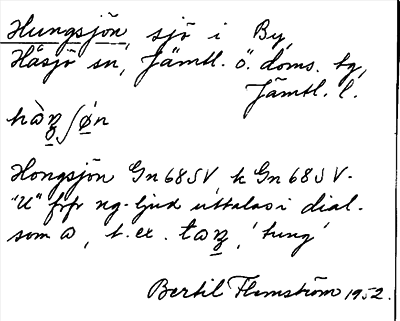 Hungsjön, sjö i By,
Håsjö sn, Jämtl. ö. doms. tg,
Jämtl. l.
hàŋʃǿn
Hongsjön Gn 68 SV, k Gn 68 S V.
"U" frfr ng-ljud uttalas i dial.
som ɷ, t. ex. tɷŋ, 'tung'
Bertil Flemström 1952.